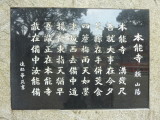 本能寺 頼山陽
本能寺 溝幾尺
吾就大事在今夕
茭粽在手併茭食
四簷梅雨天如墨
老坂西去備中道
揚鞭東指天猶早
吾敵正在本能寺
敵在備中汝能備